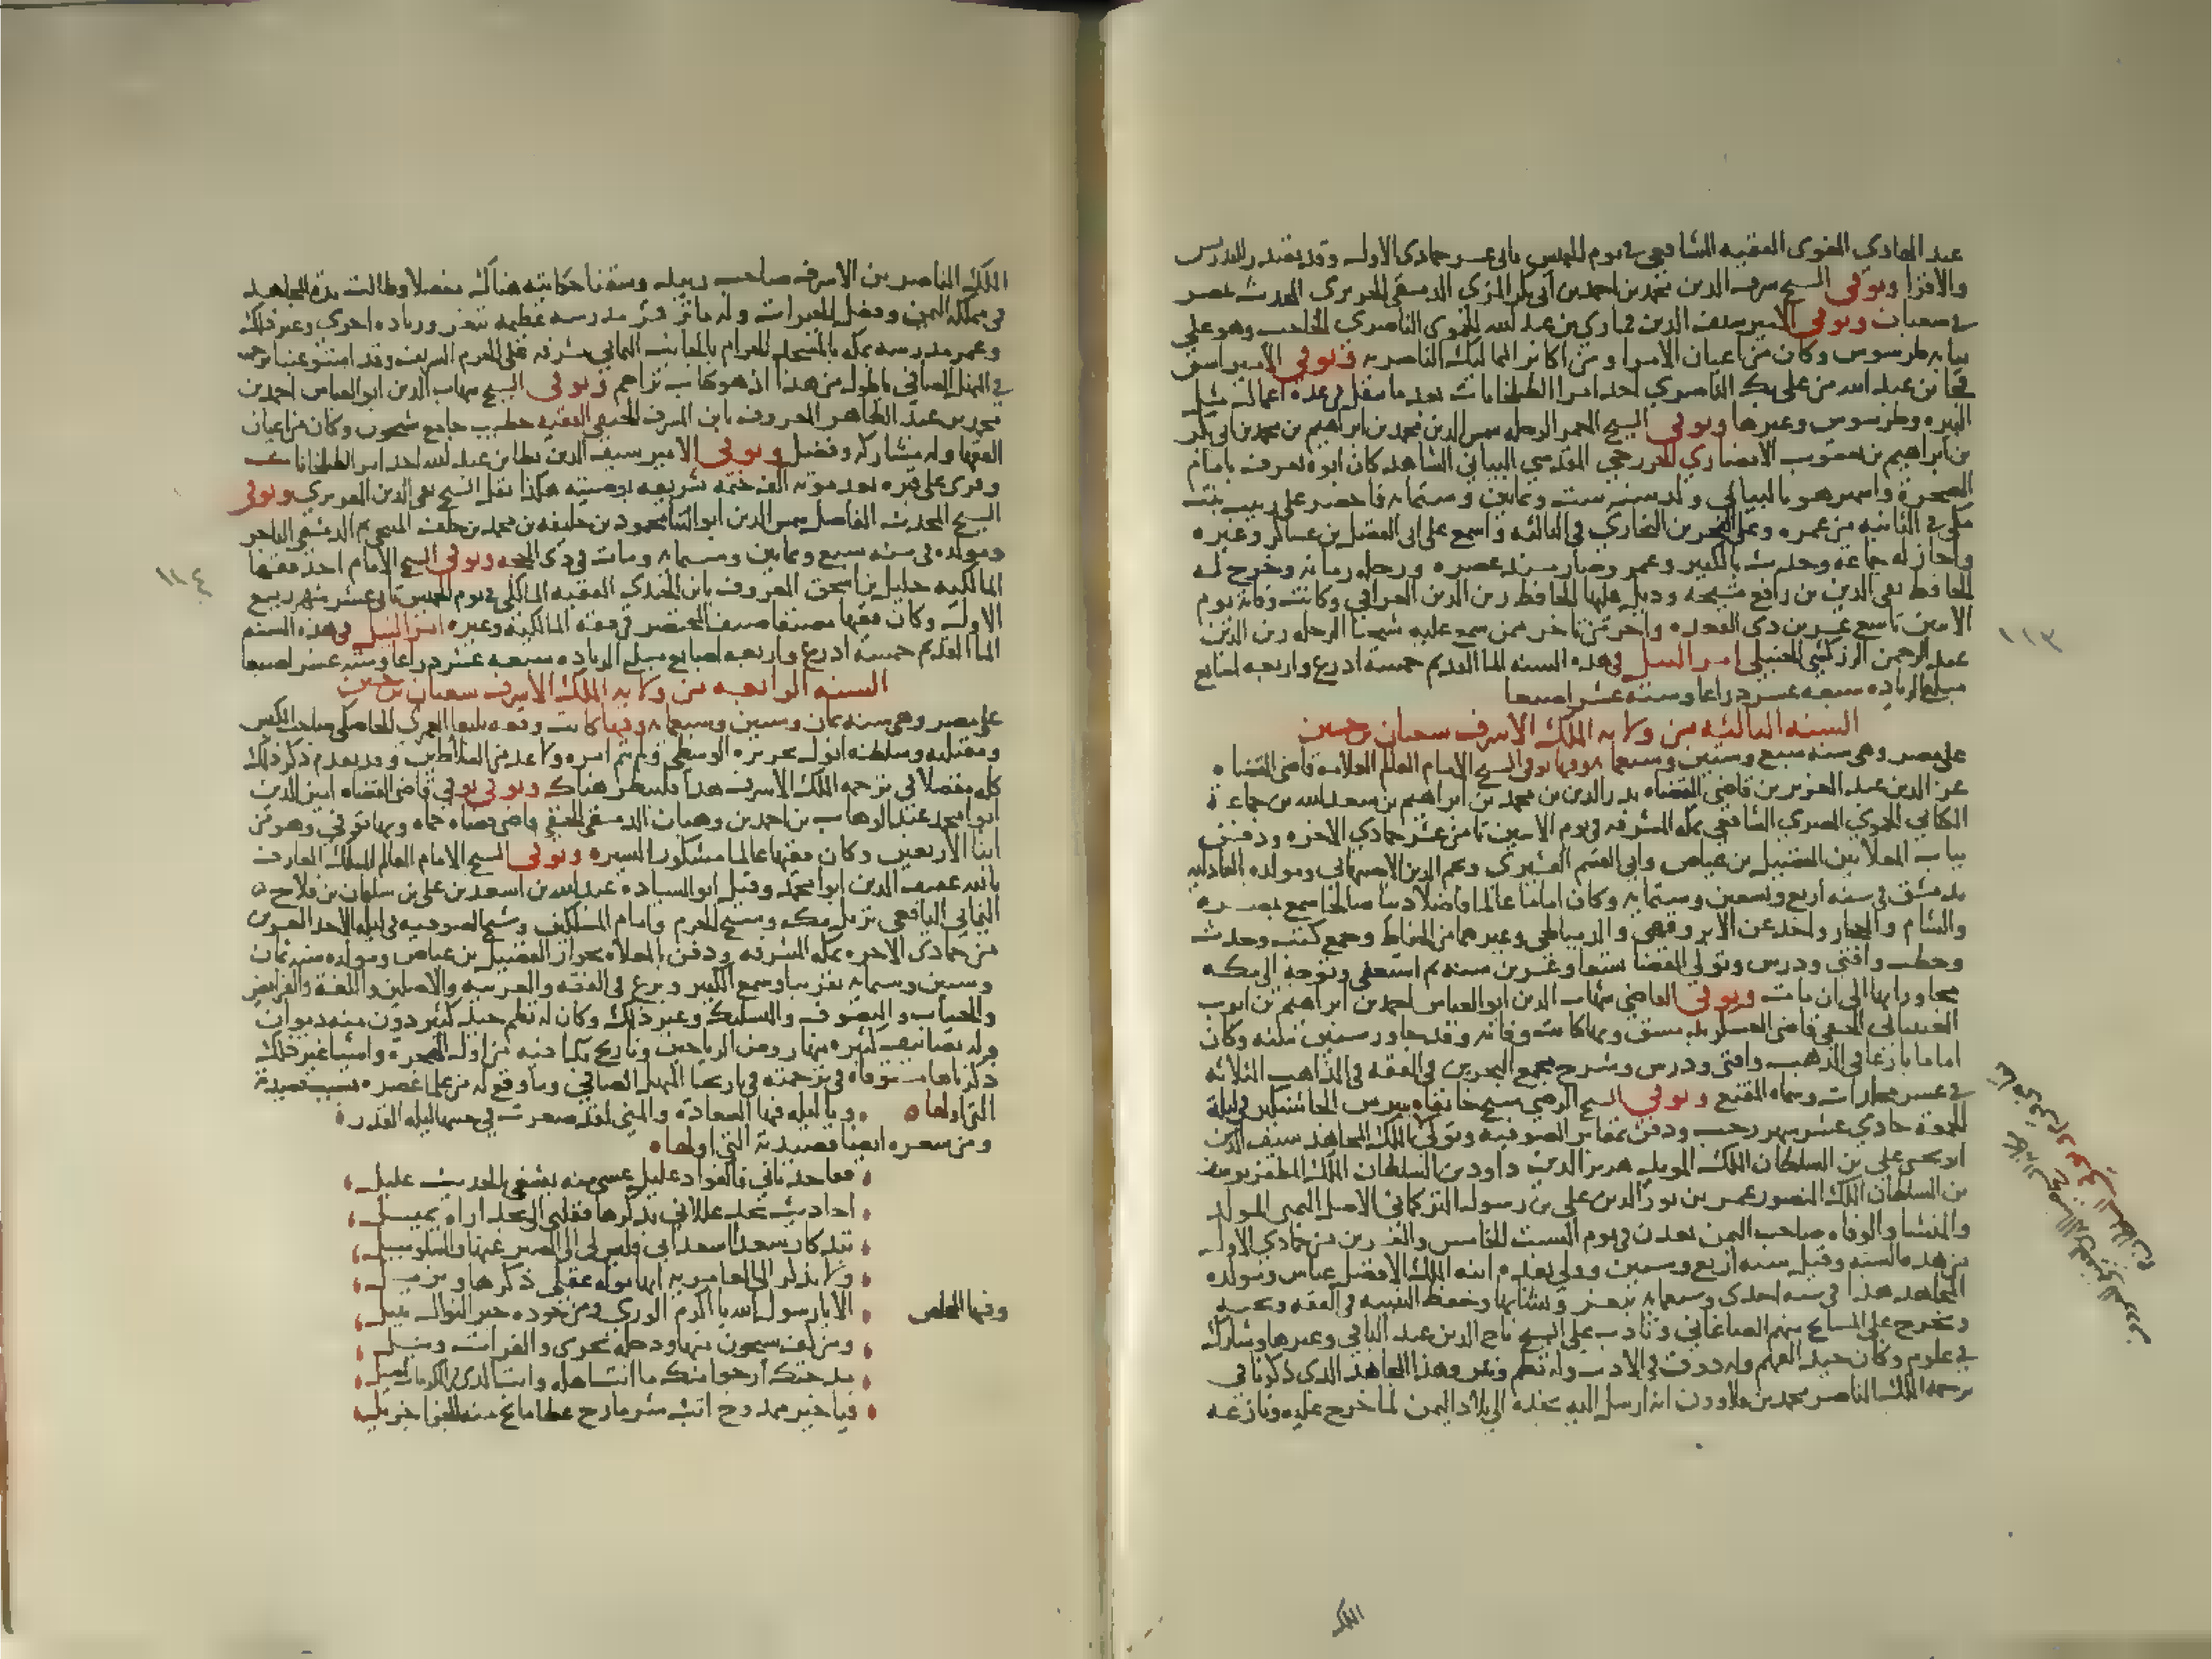 عبد الهادى الفوى الفقيه الشافعى فى يوم الخميس ثانى عشر جمادى الاولى وقد تصدر للتدريس
والاقرا وتوفى الشيخ شرف الدين محمد بن احمد بن ابى بكر المزى الدمشقى الحريرى المحدث بمصر
فى شعبان وتوفى الامير سيف الدين قمارى بن عبد الله الحموى الناصرى الحاجب وهو على
نيابة طرسوس وكان من اعيان الامرا ومن اكابر المماليك الناصرية وتوفى الامير اسن
قجا بن عبد الله من على بك الناصرى احد امرا الطبلخانات بعد ما تنقل فى عدة اعمال مثل
البيرة وطرسوس وغيرها وتوفى الشيخ المعمر الرحلة شمس الدين محمد بن ابراهيم بن محمد بن ابى بكر
بن ابراهيم بن يعقوب الانصارى الخزرجى المقدسى البيانى الشاهد كان ابوه يعرف بامام
الصخرة واشتهر هو بالبيانى ولد سنة ست وثمانين وستمائة فاحضر على زينب بنت
مكى فى الثانية من عمره وعلى الفخر بن البخارى فى الثالثة واسمع على ابى الفضل بن عساكر وغيره
واجاز له جماعة وحدث بالكثير وعمر وصار مسند عصره ورحلة زمانه وخرج له
الحافظ تقى الدين بن رافع مشيخة وذيل عليها الحافظ زين الدين العراقى وكانت وفاته يوم
الاثنين تاسع عشرين ذى القعدة واخر من تاخر ممن سمع عليه شيخنا الرحلة زين الدين
عبد الرحمن الزركشى الحنبلى امر النيل فى هذه السنة الما القديم خمسة ادرع واربعة اصابع
مبلغ الزيادة سبعة عشر دراعا وستة عشر اصبعا
السنة الثالثة من ولاية الملك الاشرف شعبان بن حسين
على مصر وهى سنة سبع وستين وسبعمائة وفيها توفى الشيخ الامام العالم العلامة قاضى القضاة
عز الدين عبد العزيز بن قاضى القضاة بدر الدين بن محمد بن ابراهيم بن سعد الله بن جماعة
الكنانى الحموى المصرى الشافعى بمكة المشرفة فى يوم الاثنين ثامن عشر جمادى الاخرة ودفن
بباب المعلا بين الفضيل بن عياض وابى القسم القشيرى ونجم الدين الاصبهانى ومولده بالعادلية
بدمشق فى سنة اربع وتسعين وستمائة وكان اماما عالما فاضلا دينا صالحا سمع بمصر
والشام والحجاز واخذ عن الابرقوهى والدمياطى وغيرهما من الحفاظ وجمع كتب وحدث
وخطب وافتى ودرس وتولى القضا تسعا وعشرين سنة ثم استعفى وتوجه الى مكة
مجاورا بها الى ان مات وتوفى القاضى شهاب الدين ابو العباس احمد بن ابراهيم بن ايوب
العينتابى الحنفى قاضى العسكر بدمشق وبها كانت وفاته وقد جاوز ستين سنة وكان
اماما بارعا فى المذهب وافتى ودرس وشرح مجمع البحرين فى الفقه فى المذاهب الثلاثة
فى عشر مجلدات وسماه المنبع وتوفى الشيخ الرضى شيخ خانقاه بيبرس الجاشنكير فى ليلة
الجمعة حادى عشر شهر رجب ودفن بمقابر الصوفية وتوفى الملك المجاهد سيف الدين
ابو يحيى على بن السلطان الملك المويد هزبر الدين داود بن السلطان الملك المظفر يوسف
بن السلطان الملك المنصور عمر بن نور الدين على بن رسول التركمانى الاصل اليمنى المولد
والمنشا والوفاة صاحب اليمن بعدن فى يوم السبت الخامس والعشرين من جمادى الاولى
من هذه السنة وقيل سنة اربع وستين وولى بعده ابنه الملك الافضل عباس ومولده
المجاهد هذا فى سنة احدى وسبعمائة بتعز ونشا بها وحفظ التنبيه فى الفقه وبحثه
وتخرج على المشايخ منهم الصاغانى وتادب على الشيخ تاج الدين عبد الباقى وغيرها وشارك
فى علوم وكان جيد الفهم وله ذوق فى الادب وله نظم ونثر وهذا المجاهد الذى ذكرنا فى
ترجمة الملك الناصر محمد بن قلاوون انه ارسل اليه نجدة الى بلاد اليمن لما خرج عليه ونازعه
الملك
١١٣
الملك الناصر بن الاشرف صاحب زبيد وسقنا حكايته هناك مفصلا وطالت مدة المجاهد
فى مملكة اليمن وفعل الخيرات وله ماثر عمر مدرسة عظيمة بتعز وزيادة اخرى وغير ذلك
وعمر مدرسة بمكة بالمسجد الحرام بالجانب اليمانى مشرفة على الحرم الشريف وقد استوعبنا ترجمته
فى المنهل الصافى باطول من هذا اذ هو كتاب تراجم وتوفى الشيخ شهاب الدين ابو العباس احمد بن
محمد بن عبد الظاهر المعروف بابن الشرف الحنفى الفقيه خطيب جامع شيخون وكان من اعيان
الفقها وله مشاركة وفضل وتوفى الامير سيف الدين بطا بن عبد الله احد امرا الطبلخانات
وقرى على قبره بعد موته الف ختمة شريفة بوصيته هكذا نقل الشيخ تقى الدين المقريزى وتوفى
الشيخ المحدث الفاضل شمس الدين ابو الثنا محمود بن خليفة بن محمد بن خلف المنبجى ثم الدمشقى التاجر
ومولده فى سنة سبع وثمانين وستمائة ومات فى ذى الحجة وتوفى الشيخ الامام احد فقها
المالكية خليل بن اسحق المعروف بابن الجندى الفقيه المالكى فى يوم الخميس ثانى عشر شهر ربيع
الاول وكان فقيها مصنفا صنف المختصر فى فقه المالكية وغيره امر النيل فى هذه السنة
الما القديم خمسة ادرع واربعة اصابع مبلغ الزيادة سبعة عشر دراعا وستة عشر اصبعا
السنة الرابعة من ولاية الملك الاشرف شعبان بن حسين
على مصر وهى سنة ثمان وستين وسبعمائة وفيها كانت وقعة يلبغا العمرى الخاصكى صاحب الكبش
ومقتله وسلطنة انوك بجزيرة الوسطى ولم يتم امره ولا عد من السلاطين وقد تقدم ذكر ذلك
كله مفصلا فى ترجمة الملك الاشرف هذا فلينظر هناك وتوفى توفى قاضى القضاة امين الدين
ابو محمد عبد الوهاب بن احمد بن وهبان الدمشقى الحنفى قاضى قضاة حماة وبها توفى وهو من
ابنا الاربعين وكان فقيها عالما مشكور السيرة وتوفى الشيخ الامام العالم المسلك العارف
بالله عفيف الدين ابو محمد وقيل ابو السيادة عبد الله بن اسعد بن على بن سليمان بن فلاح
اليمانى اليافعى نزيل مكة وشيخ الحرم وامام المسلكين وشيخ الصوفية فى ليلة الاحد العشرين
من جمادى الاخرة بمكة المشرفة ودفن بالمعلاة بجوار الفضيل بن عياض ومولده سنة ثمان
وستين وستمائة تقريبا وسمع الكثير وبرع فى الفقه والعربية والاصلين واللغة والفرايض
والحساب والتصوف والتسليك وغير ذلك وكان له نظم جيد كثير دون منه ديوان
وله تصانيف كثيرة منها روض الرياحين وتاريخ بدا فيه من اول الهجرة واشيا غير ذلك
ذكرناها مستوفاة فى ترجمته فى تاريخنا المنهل الصافى وما وقع له مع علما عصره بسبب قصيدته
التى اولها ويا ليلة فيها السعادة والمنى لقد صغرت فى جنبها ليلة القدر
ومن شعره ايضا قصيدته التى اولها
قفا حدثانى فالفواد عليل عسى منه يشفى بالحديث عليل
احاديث نجد عللانى بذكرها فقلبى الى نجد اراه يميل
بتذكار سعدا اسعدانى فليس لى الى الصبر عنها والسلو سبيل
ولا تذكرا لى العامرية انها يوله عقلى ذكرها ويزيل
وفيها المخلص
الا يا رسول الله يا اكرم الورى ومن جوده خير النوال ينيل
ومن كفه سيحون منها ودجلة تجرى والفرات ونيل
مدحتك ارجو منك ما انت اهله وانت الذى فى المكرمات اصيل
فيا خير ممدوح اثب شر مادح عطا مانح منه الجزا جزيل
١١٤